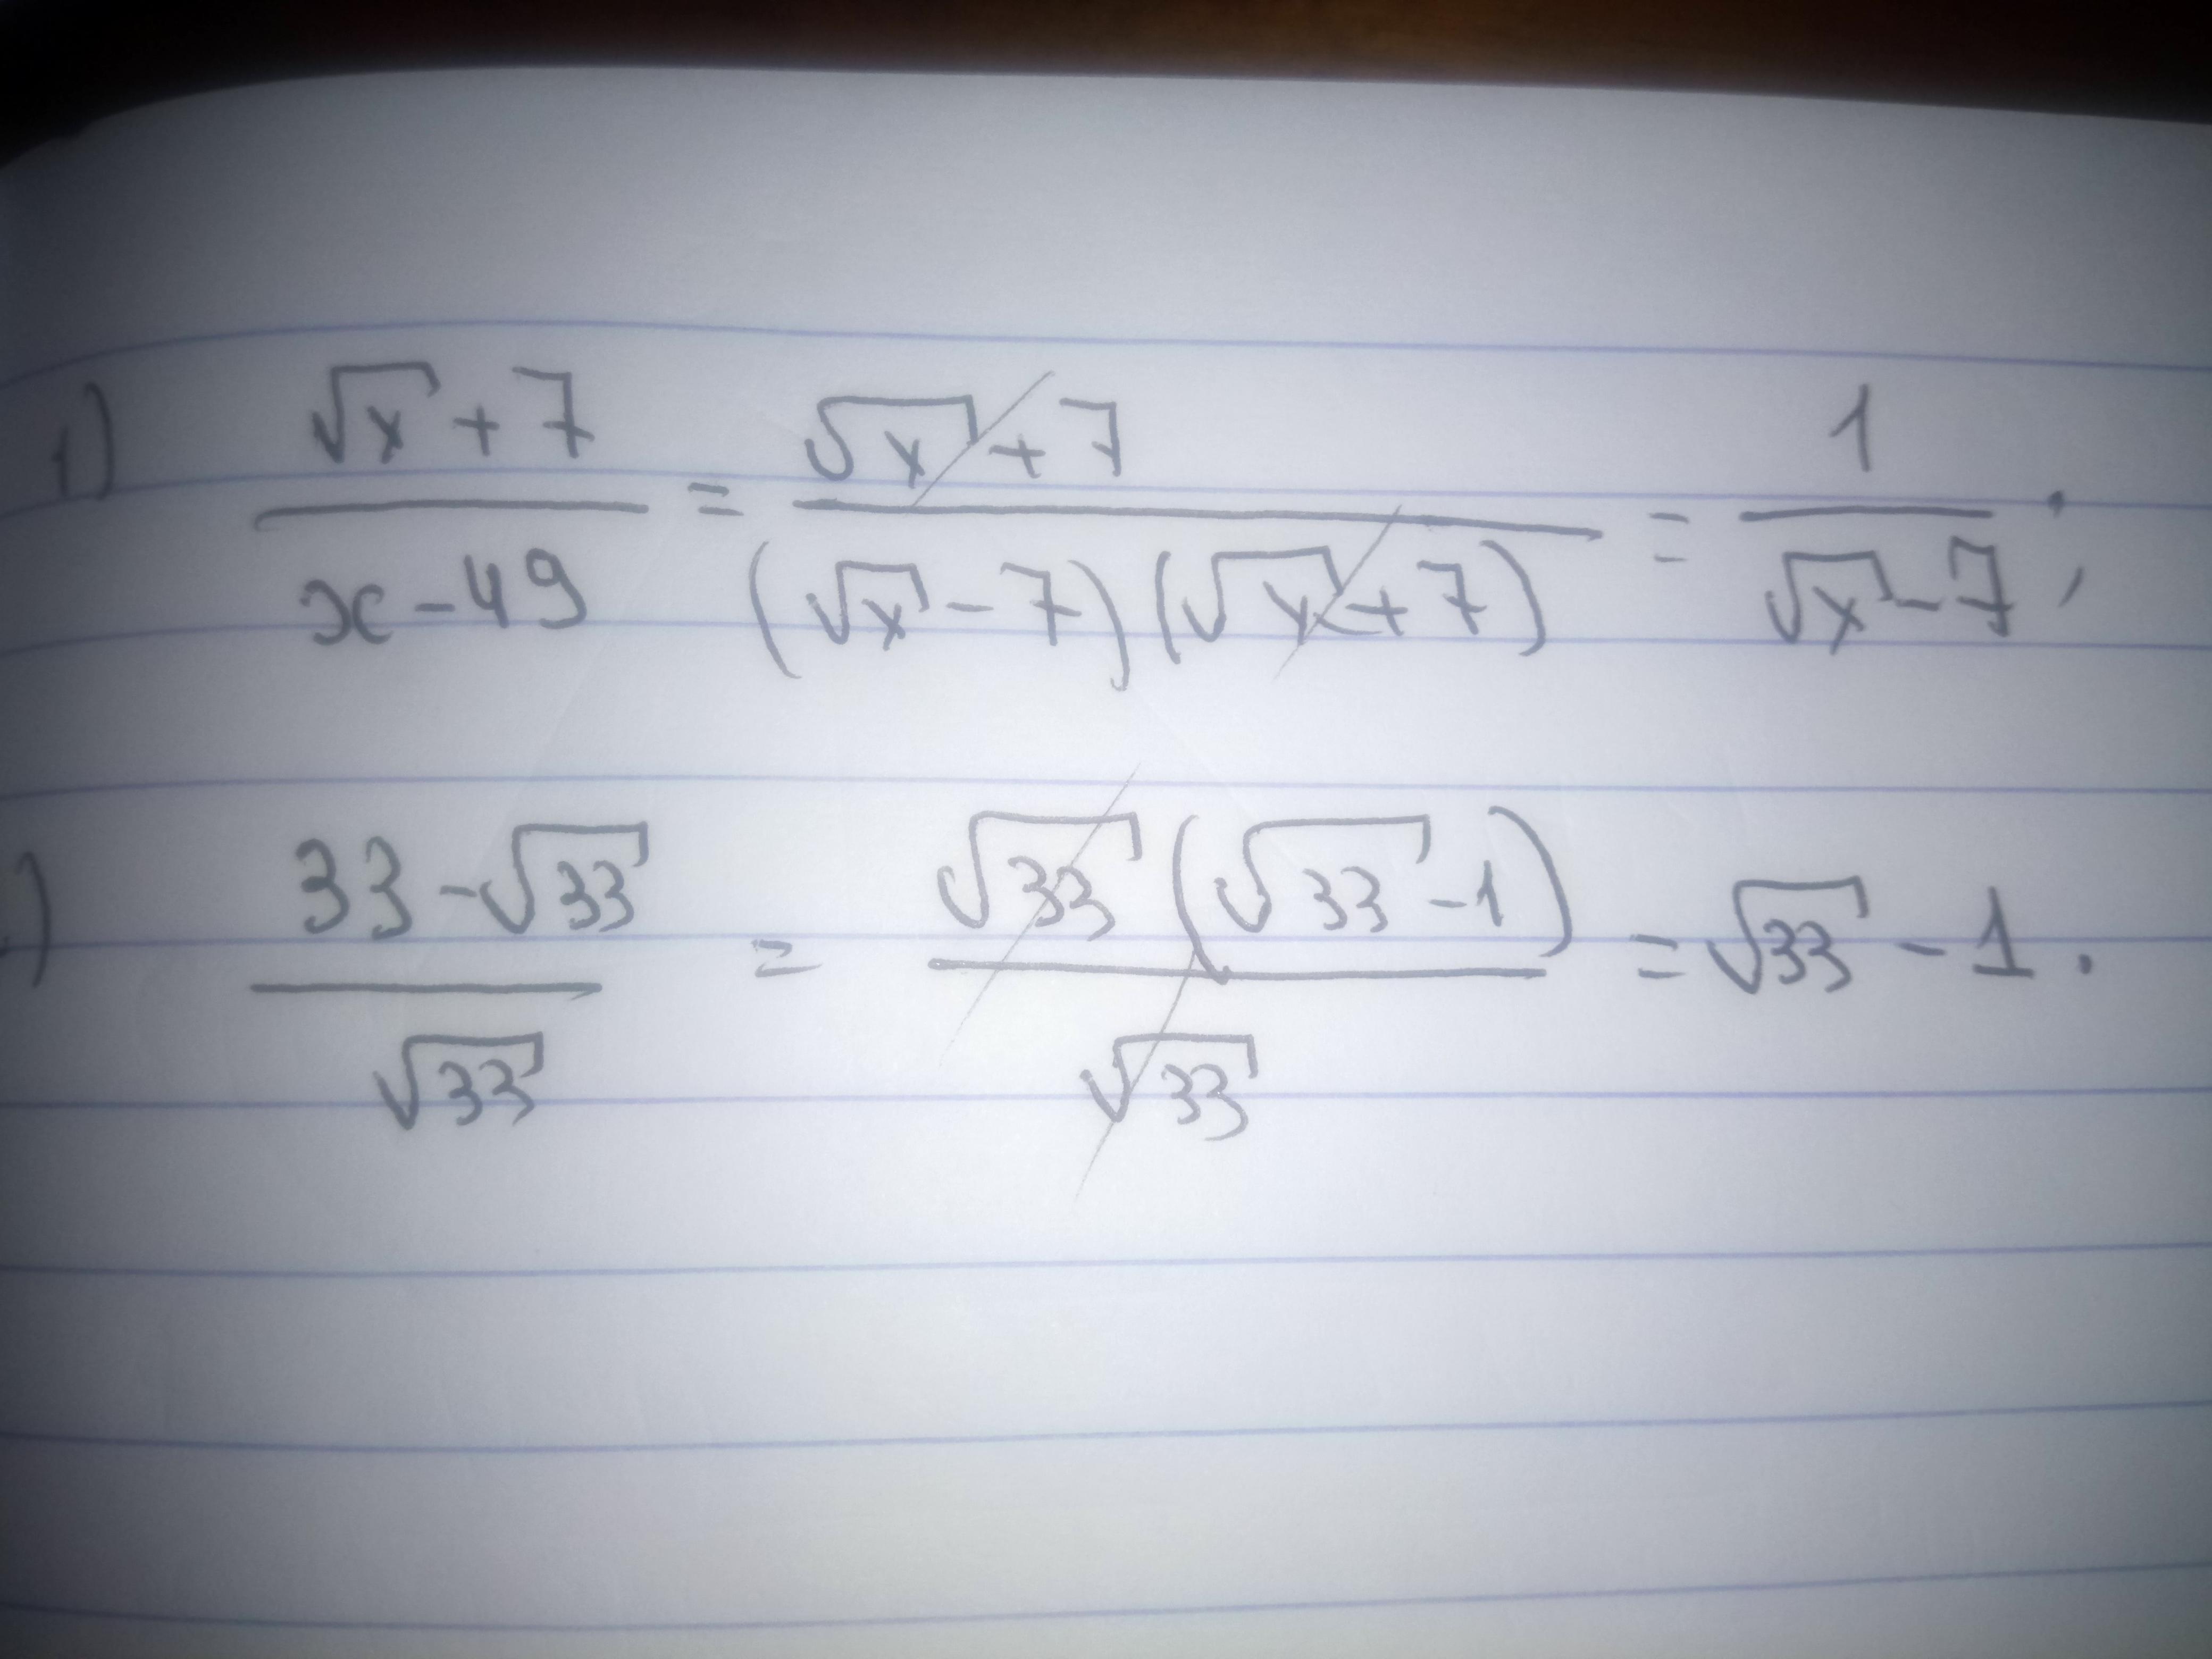 1) (√x + 7)/(x - 49) = (√x + 7)/((√x - 7)(√x + 7)) = 1/(√x - 7);
) (33 - √33)/√33 = (√33(√33 - 1))/√33 = √33 - 1.